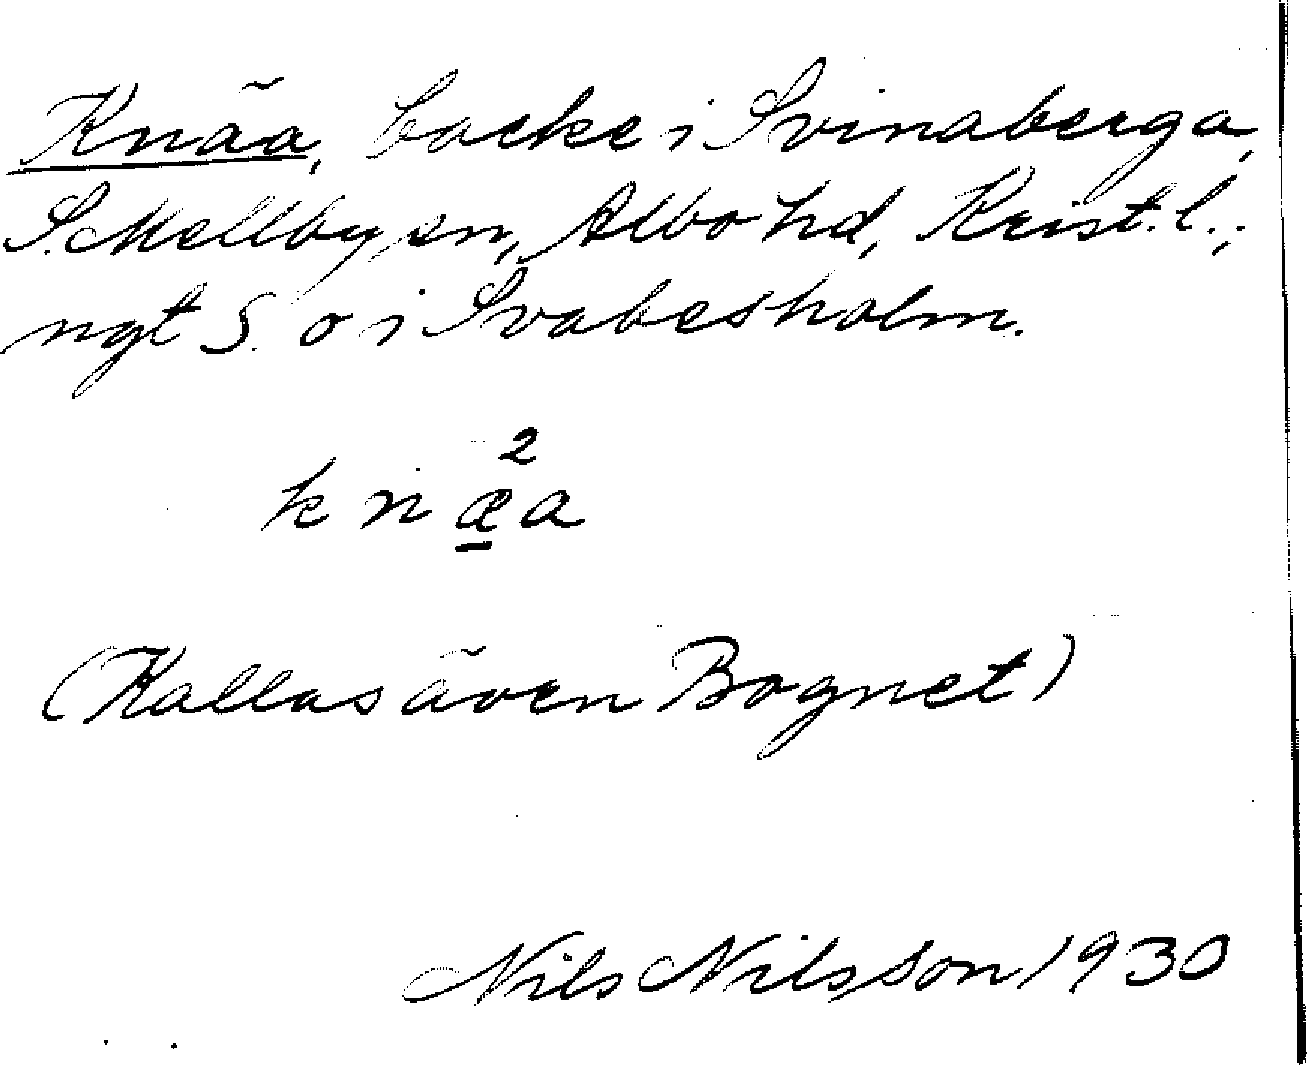 Knäa, backe i Svinaberga,
S. Mellby sn, Albo hd, Krist. l.;
ngt S. o i Svabesholm.
k n æ̱² a
(Kallas även Bognet)
Nils Nilsson 1930